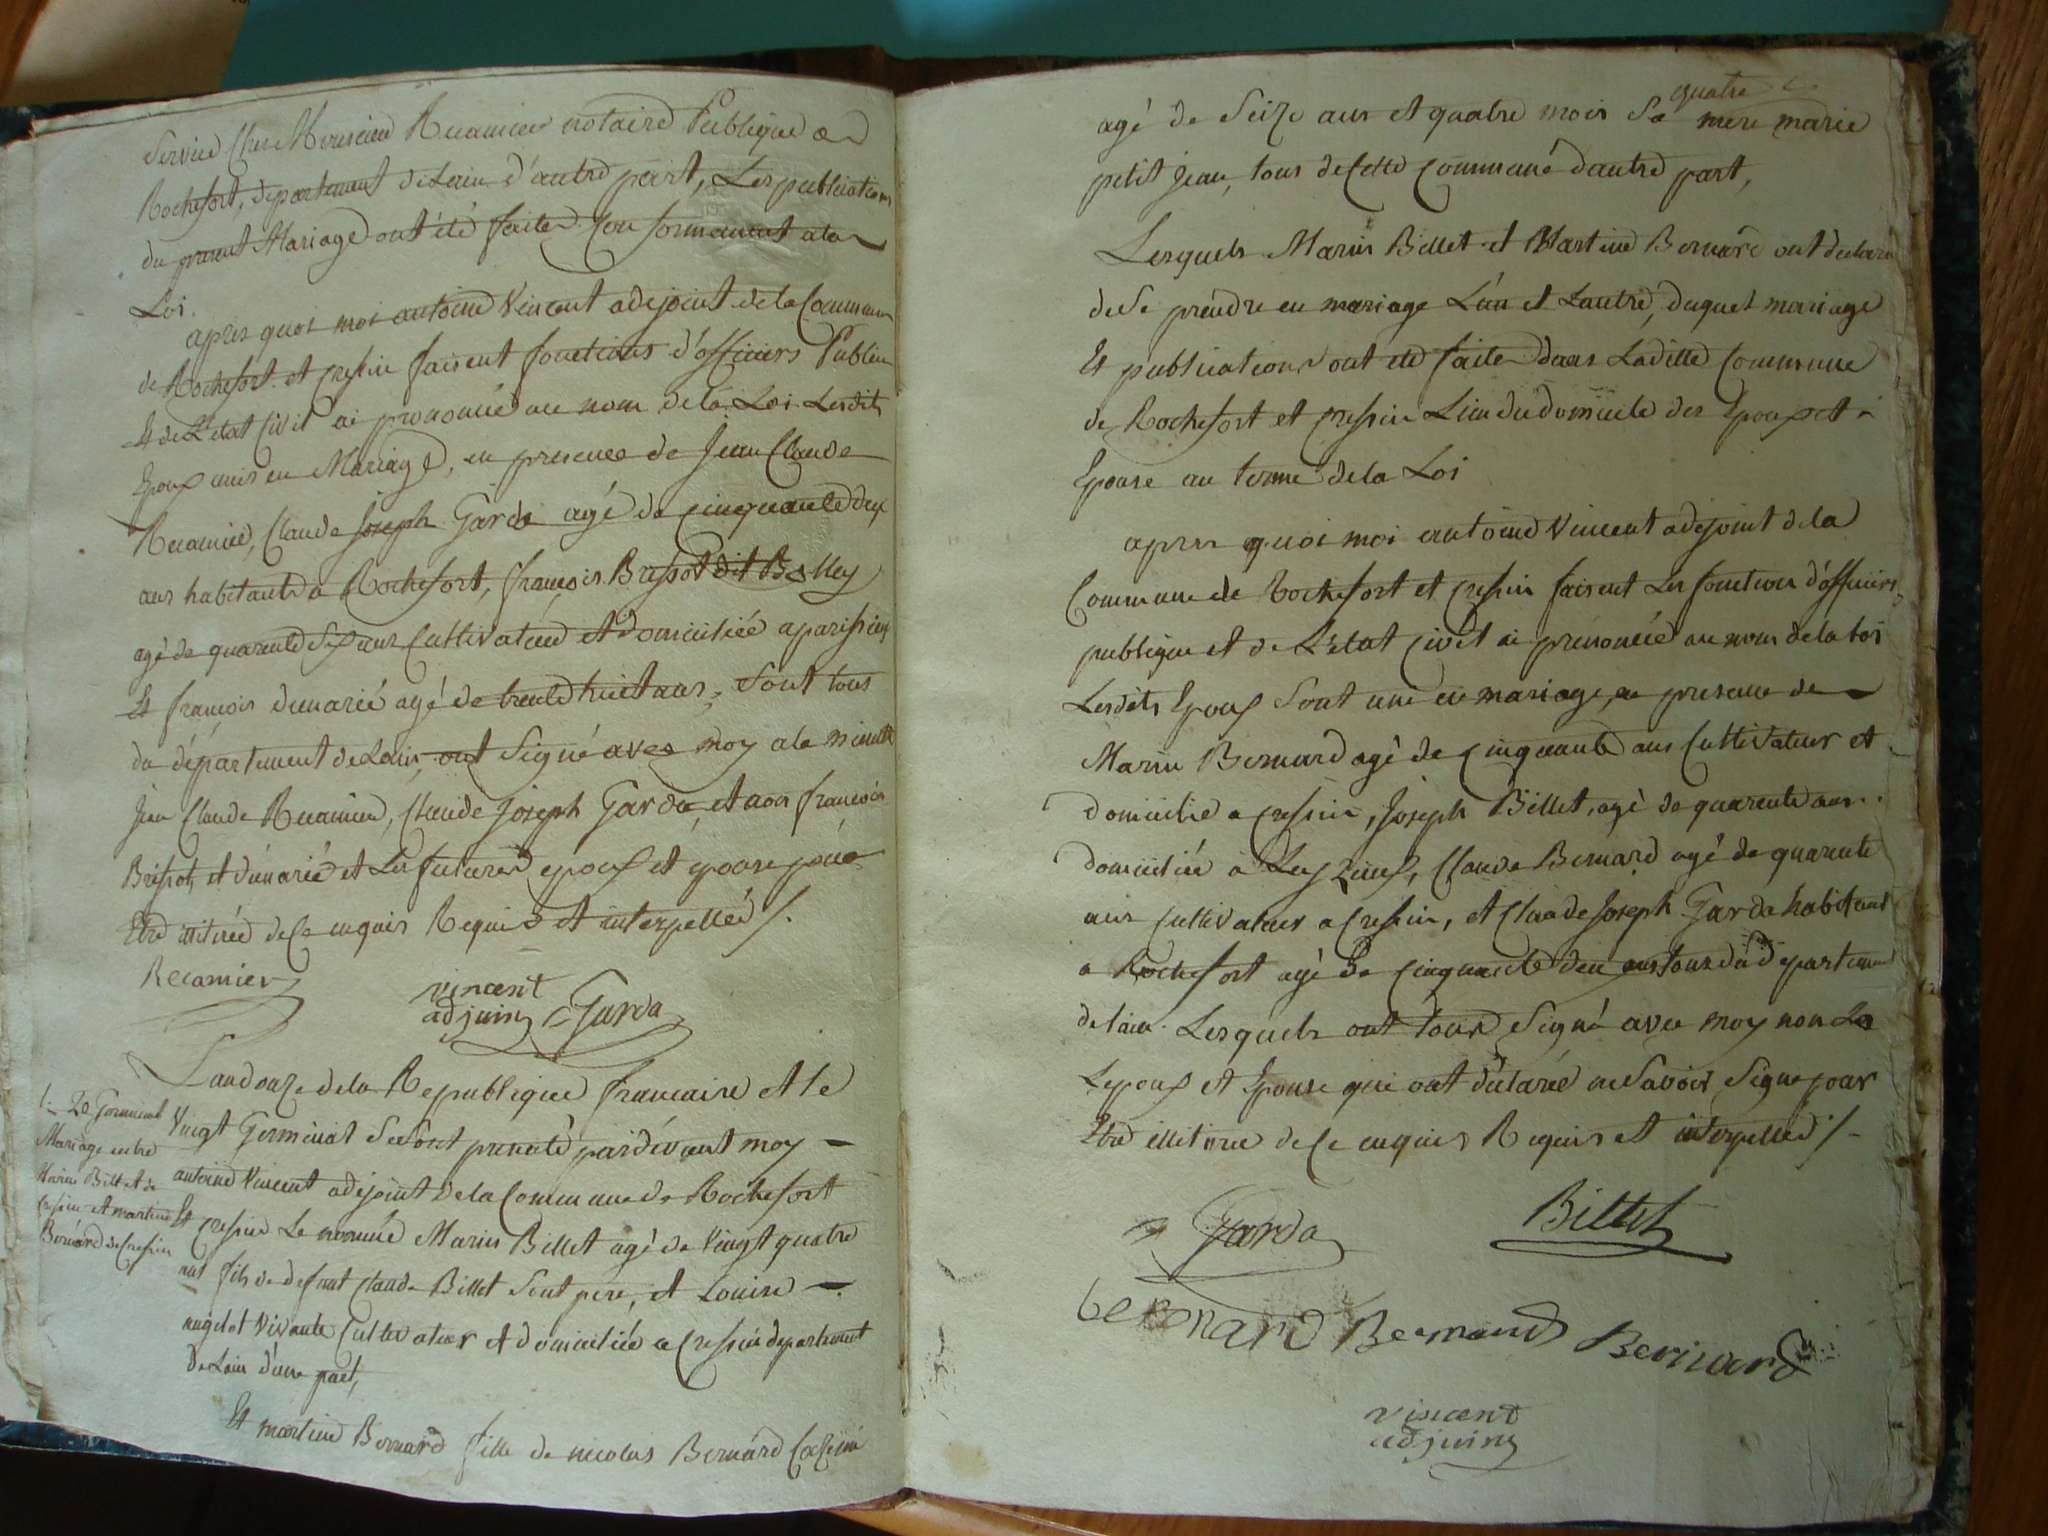 Service Chez Recamier notaire Publique a
Rochefort, departement de Lain d'autre part, Les publications
du present Mariage ont été faites Conformement a la
Loi.
apres quoi moi antoine Vincent adejoint de la Commune
de Rochefort et cressin faisent fonctions d'officiers Public
Et de L'etat Civil ai prononcé au nom de la Loi Lesdits
Epoux unis en Mariage, en presence de Jean Claude
Recamier, Claude Joseph Garda agé de cinquante deux
ans habitant a Rochefort, françois Bressot dit Belley
agé de quarente Sept ans Cultivateur et domiciliée a parissieu
Et françois dumarié agé de trente huit ans, Sont tous
du département de Lain, ont Signé avec moy a la minutte
Jean Claude Recamier, Claude Joseph Garda, et non françois
Bressot, et dumarié et Les futures epoux et epouse pour
Etre illitirée de Ce enquis Requis et interpellés /.
Recamier
vincent
adjuin Garda
Landouze de la Republique francaise et le
Vingt Germinal Se Sont presenté pardevant moy
antoine Vincent adejoint de la Commune de Rochefort
Et cressin Le nommée Marin Billet agé de Vingt quatre
ans fils de defunt Claude Billet Sont pere, et Louise
nugelot Vivante Cultivateur et domiciliée a Cressin departement
De Lain d'une part,
Et martine Bernard fille de nicolas Bernard
20 Germinal
Mariage entre
Marin Billet de
cressin et martine
Bernard de Cressin
quatre
agé de Seize ans et quatre mois Sa mere marie
petit Jean, tous de Cette Commune dautre part,
Lesquels Marin Billet et Martine Bernard ont declaré
de Se prendre en mariage L'un et Lautre, duquel mariage
Et publications ont été faites dans Ladille Commune
de Rochefort et cressin Lieu du domicile des Epoux et
Epouse au terme de la Loi
apres quoi moi antoine Vincent adejoint de la
Commune de Rochefort et cressin faisent Les fonctions d'officiers
publique et de L'etat Civil ai prenoncée au nom de la Loi
Lesdits Epoux Sont unie en mariage, en presence de
Marin Bernard agé de Cinquante ans Cultivateur et
domicilié a Cressin, Joseph Billet, agé de quarente ans
domiciliée à Claude Bernard agé de quarente
ans Cultivateur a Cressin, et Claude Joseph Garda habitant
a Rochefort agé De Cinquante deux ans tous du departement
de Lain. Lesquels ont tous Signé avec moy non
Lepoux et Epouse qui ont déclarée ne Savoir Signe pour
Etre illitirée de Ce enquis Requis et interpelled /.
Garda Billet
be ronard Bernard Bernard
vincent
adjuin